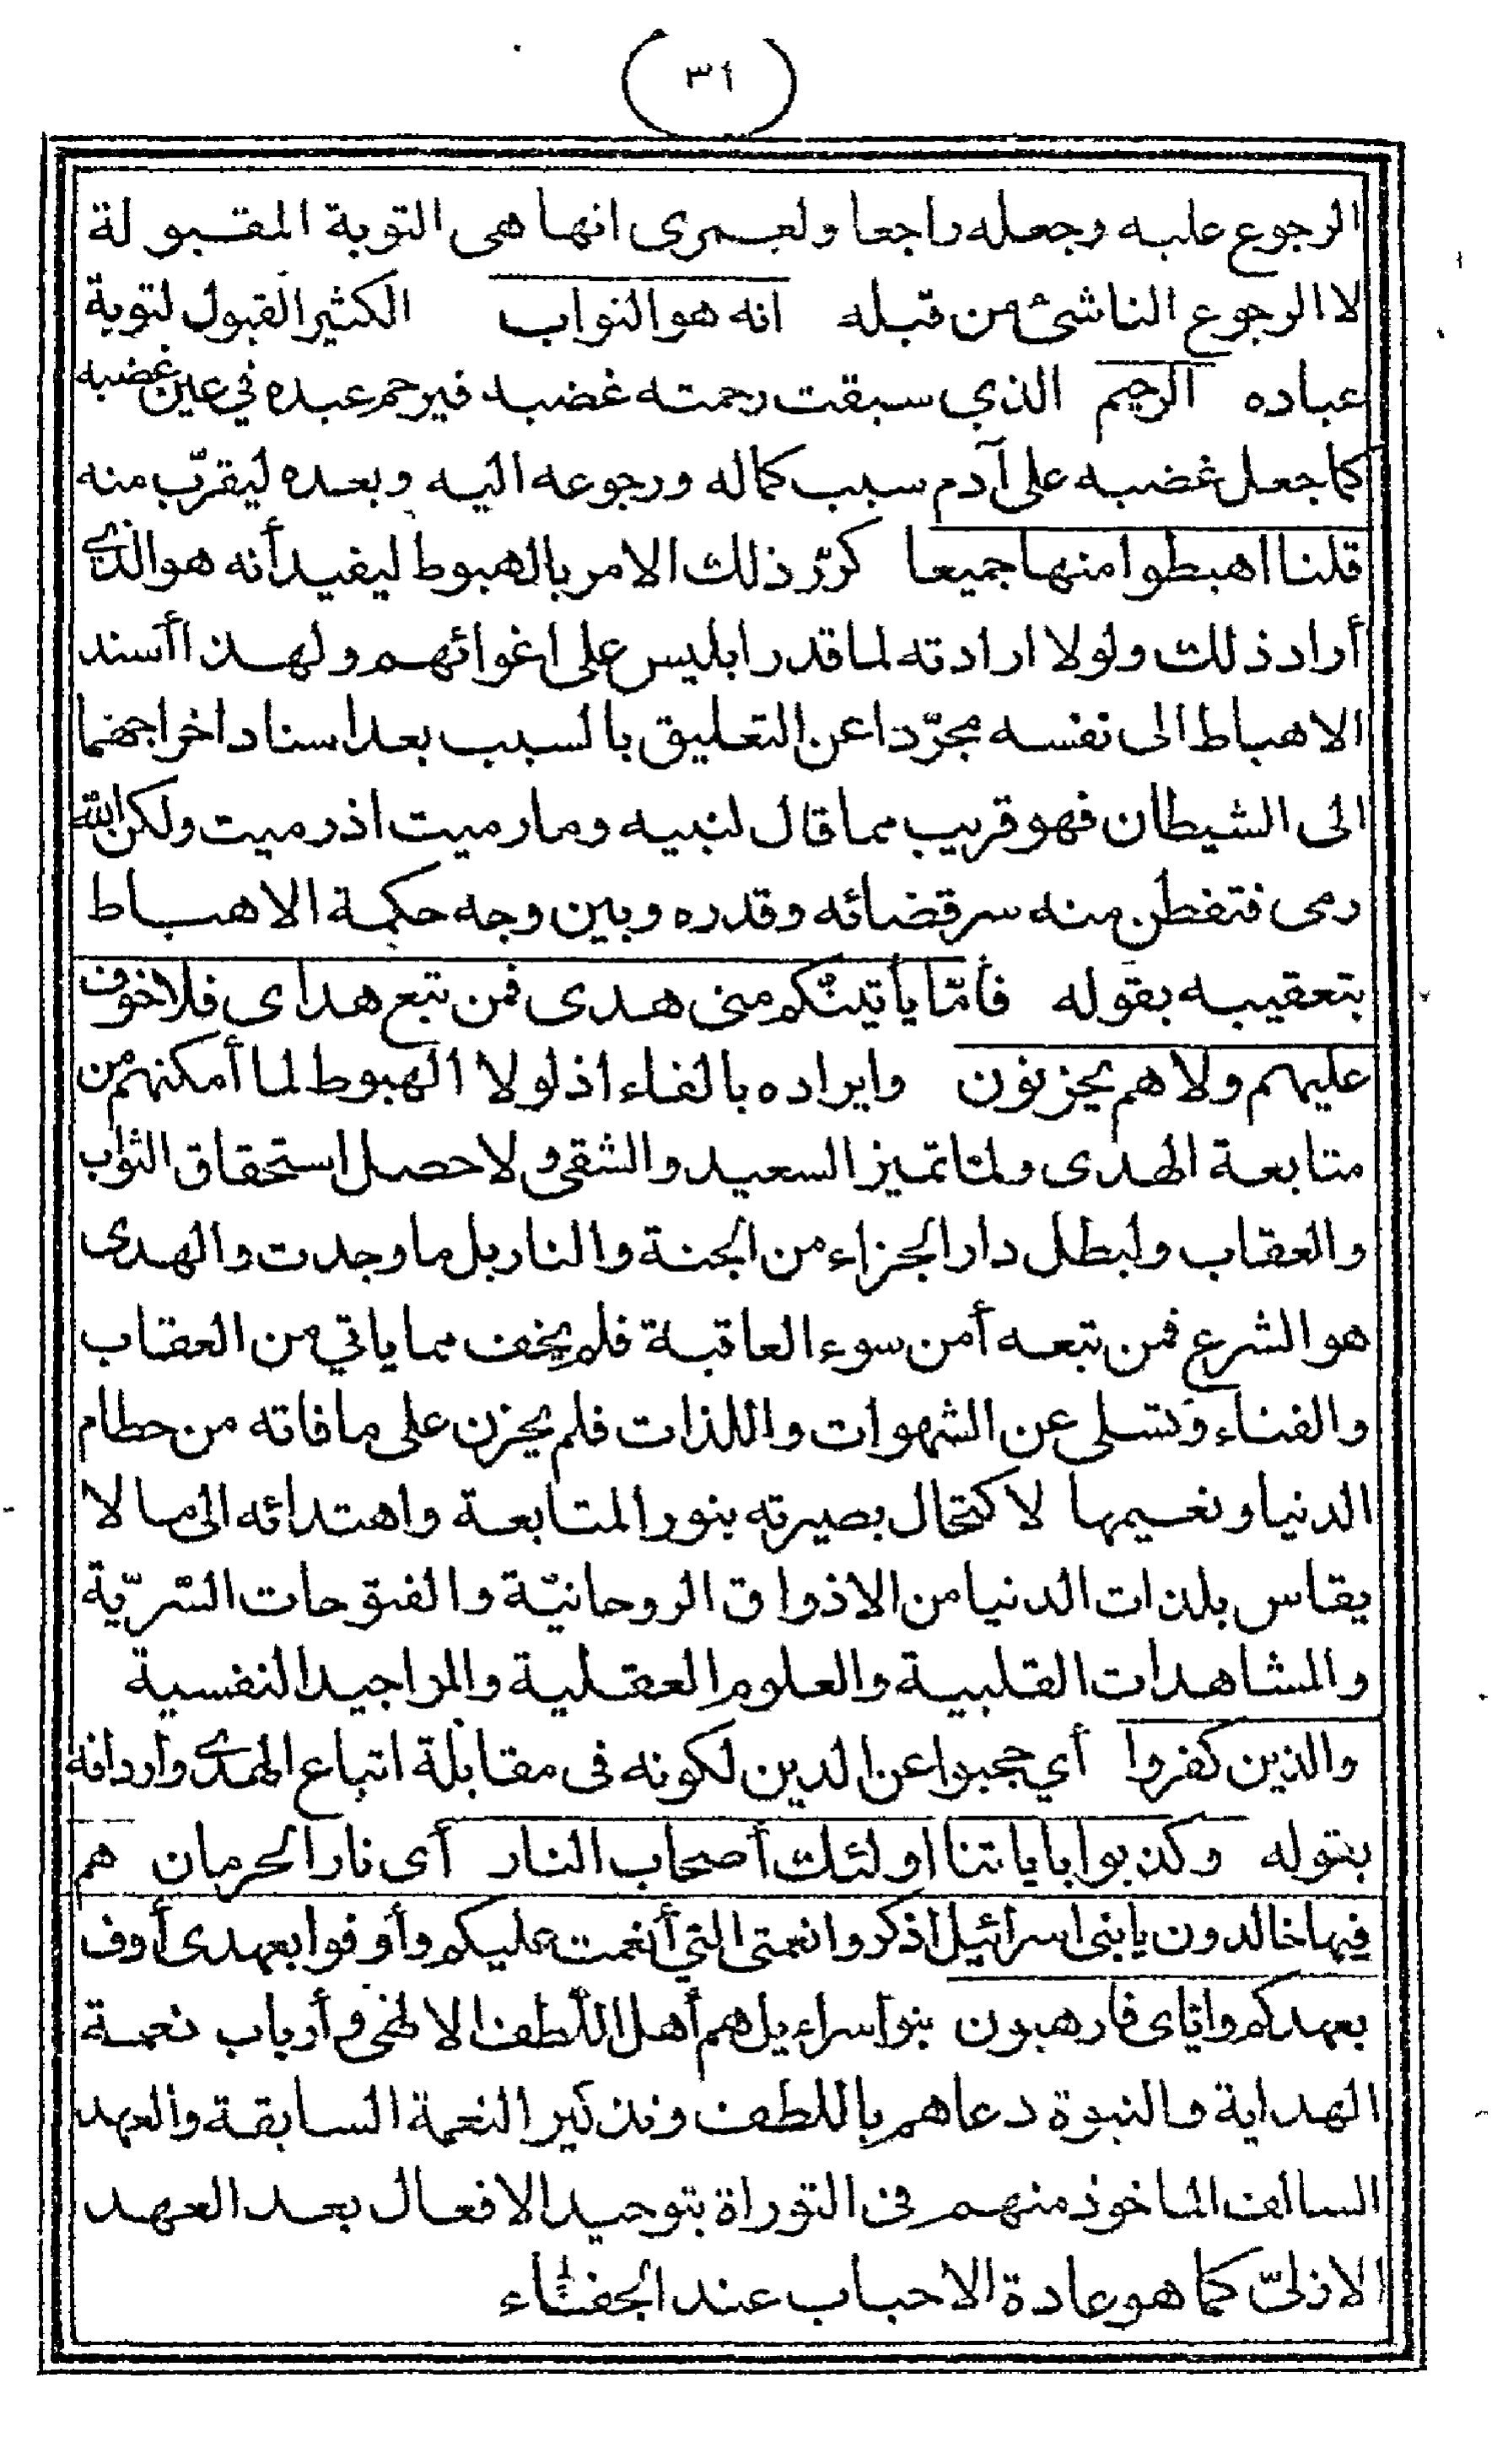 ٣١
الرجوع عليه وجعله راجعا ولعمرى انها هى التوبة المقبولة
لا الرجوع الناشئ من قبله انه هو التواب الكثير القبول لتوبة
عباده الرحيم الذي سبقت رحمته غضبه فيرحم عبده في عين غضبه
كما جعل غضبه على آدم سبب كماله ورجوعه اليه وبعده ليقرّب منه
قلنا اهبطوا منها جميعا كرّر ذلك الامر بالهبوط ليفيد أنه هو الذي
أراد ذلك ولولا ارادته لما قدر ابليس على اغوائهم ولهذا أسند
الاهباط الى نفسه مجرّدا عن التعليق بالسبب بعد اسناد اخراجهما
الى الشيطان فهو قريب مما قال لنبيه وما رميت اذ رميت ولكن الله
رمى فتفطن منه سر قضائه وقدره وبين وجه حكمة الاهباط
بتعقيبه بقوله فأمّا يأتينّكم منى هدى فمن تبع هداى فلا خوف
عليهم ولا هم يحزنون وايراده بالفاء اذ لولا الهبوط لما أمكنهم من
متابعة الهدى ولما تميز السعيد والشقى ولا حصل استحقاق الثواب
والعقاب ولبطل دار الجزاء من الجنة والنار بل ما وجدت والهدى
هو الشرع فمن تبعه أمن سوء العاقبة فلم يخف مما ياتي من العقاب
والفناء وتسلى عن الشهوات واللذات فلم يحزن على ما فاته من حطام
الدنيا ونعيمها لاكتحال بصيرته بنور المتابعة واهتدائه الى ما لا
يقاس بلذات الدنيا من الاذواق الروحانيّة والفتوحات السّريّة
والمشاهدات القلبية والعلوم العقلية والمواجيد النفسية
والذين كفروا أي حجبوا عن الدين لكونه فى مقابلة اتباع الهدى واردافه
بقوله وكذبوا باياتنا اولئك أصحاب النار أى نار الحرمان هم
فيها خالدون يابنى اسرائيل اذكروا نعمتى التي أنعمت عليكم وأوفوا بعهدى أوف
بعهدكم واياى فارهبون بنو اسراءيل هم أهل اللطف الالهى وأرباب نعمة
الهداية والنبوة دعاهم باللطف وتذكير النعمة السابقة والعهد
السالف الماخوذ منهم فى التوراة بتوحيد الافعال بعد العهد
الازلىّ كما هو عادة الاحباب عند الجفاء